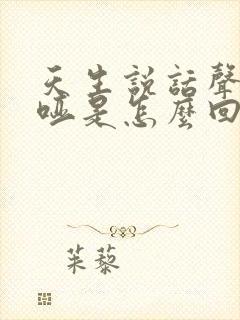 天生説話聲
啞是怎麼回
茱藜